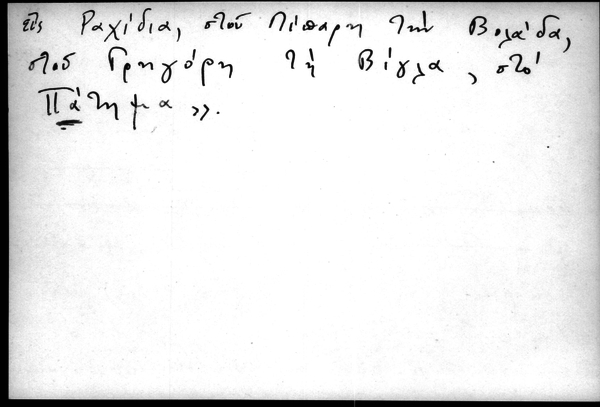 εἰς Ραχίδια, στοῦ Πίπαρη τὴν Βολάδα,
στοῦ Γρηγόρη τὴ Βίγλα, στὸ
Πάτημα».